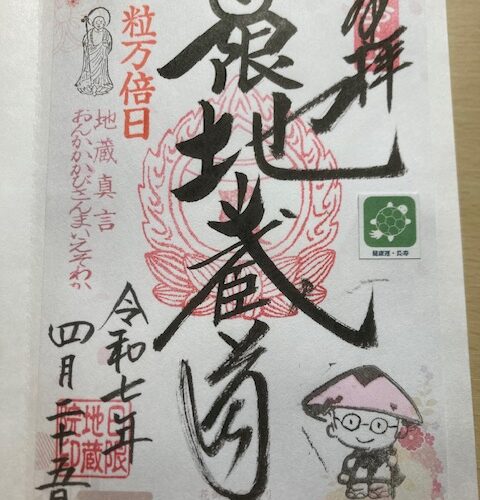 拝
限地蔵尊
粒万倍日
地蔵真言
おんかかかびさんまいえそわか
令和七年
四月二十五日
日限
地蔵
院印
健康運・長寿